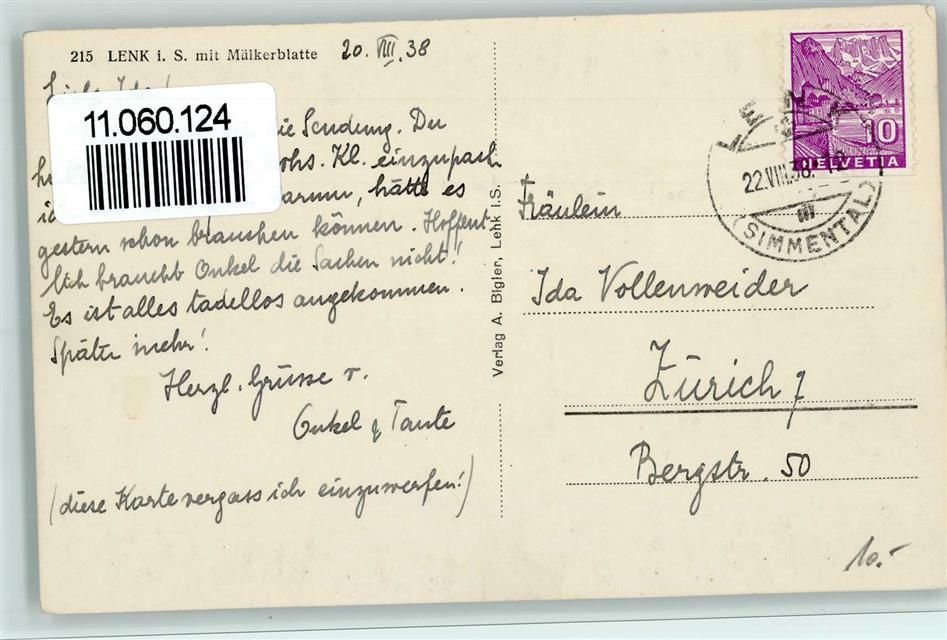 215 LENK i. S. mit Mülkerblatte
20. VIII. 38
11.060.124
die Sendung. Du
Kl. einzupack
warum, hätte es
gestern schon brauchen können. Hoffent-
lich braucht Onkel die Sachen nicht!
Es ist alles tadellos angekommen.
Später mehr!
Herzl. Grüsse v.
Onkel & Tante
(diese Karte vergass ich einzuwerfen!)
Verlag A. Bigler, Lenk i.S.
10
HELVETIA
22.VIII.38.
(SIMMENTAL)
Fräulein
Ida Vollenweider
Zürich 7
Bergstr. 50
10.-